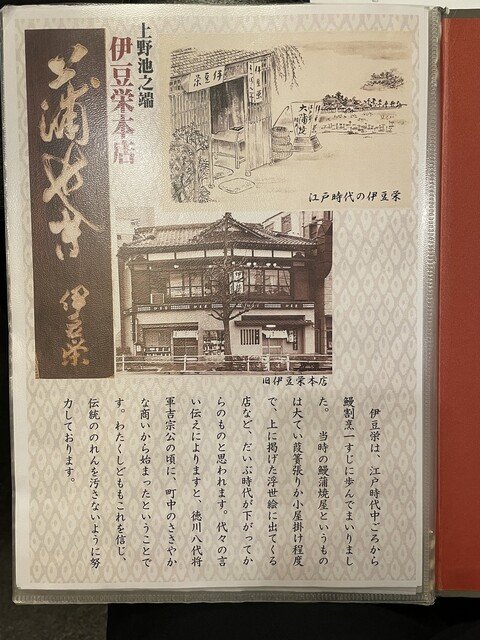 上野池之端
伊豆栄本店
蒲焼
伊豆栄
伊豆栄
大蒲焼
江戸時代の伊豆栄
旧伊豆栄本店
伊豆栄は、江戸時代中ごろから
鰻割烹一すじに歩んでまいりまし
た。　当時の鰻蒲焼屋というもの
は大てい葭簀張りか小屋掛け程度
で、上に掲げた浮世絵に出てくる
店など、だいぶ時代が下がってか
らのものと思われます。代々の言
い伝えによりますと、徳川八代将
軍吉宗公の頃に、町中のささやか
な商いから始まったということで
す。わたくしどももこれを信じ、
伝統ののれんを汚さないように努
力しております。